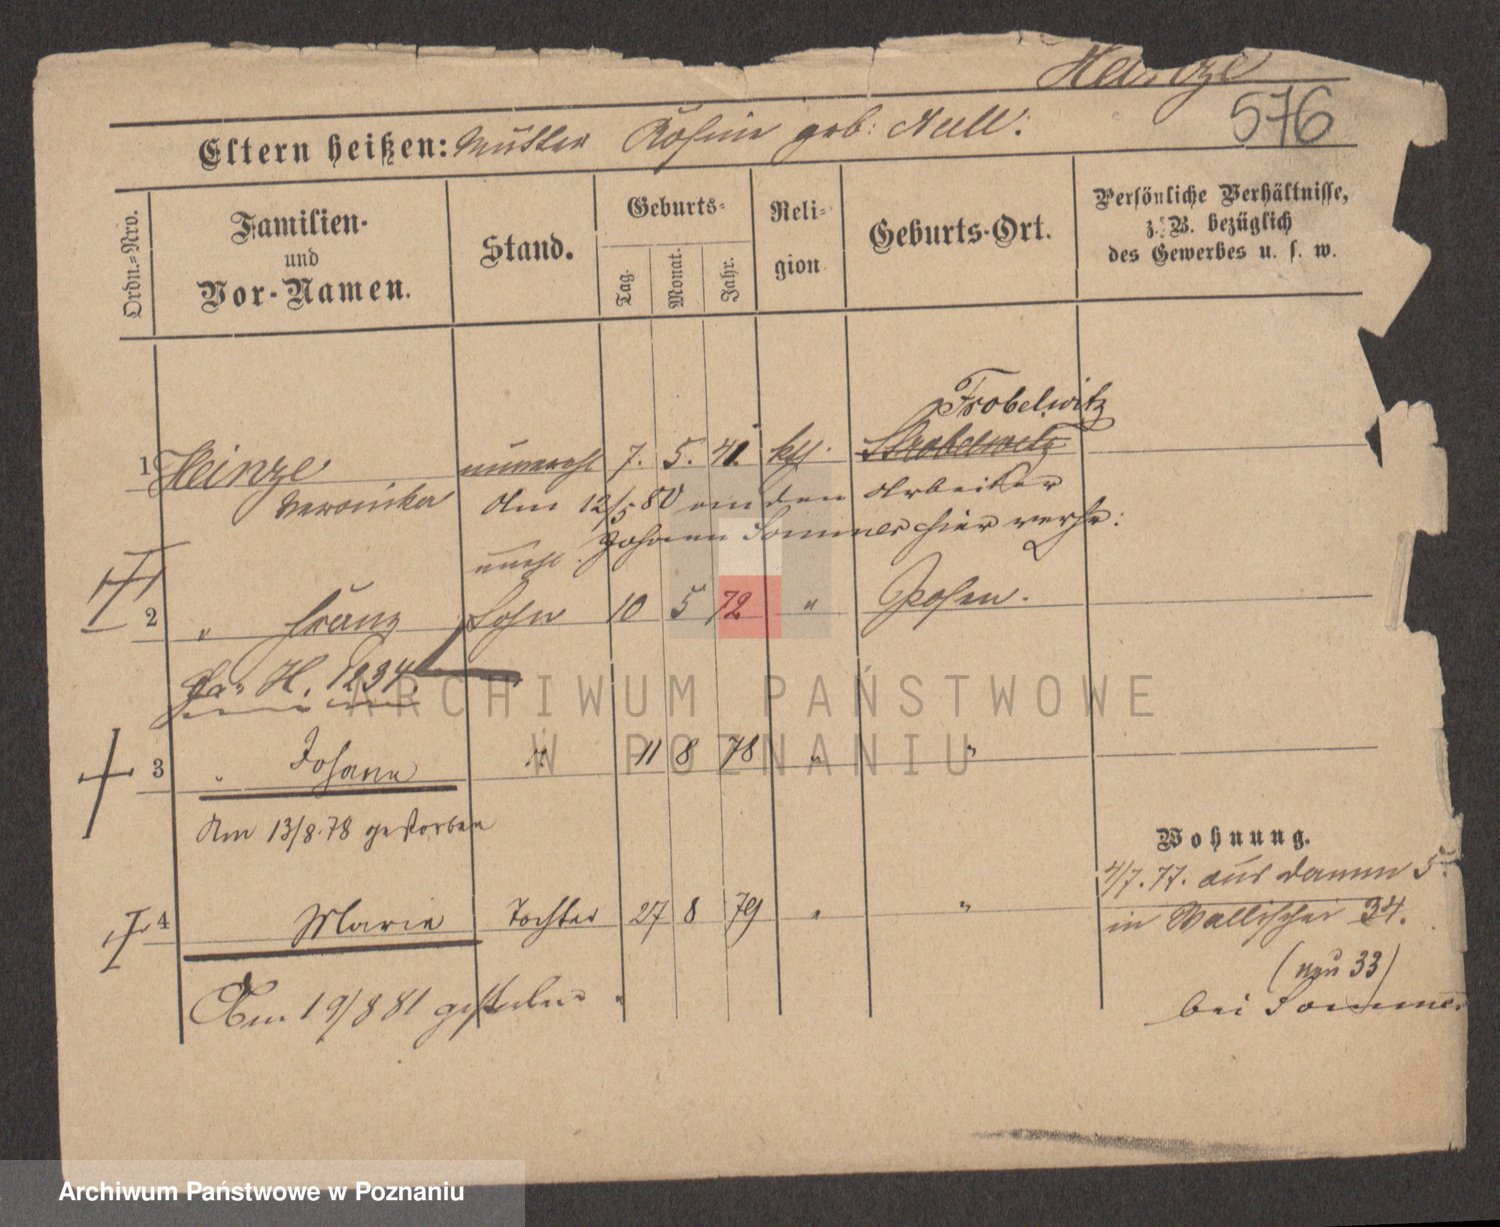 Heinze
576
Eltern heißen: Mutter Rosine geb: Null.
Ordn.-Nro.
Familien-
und
Vor-Namen.
Stand.
Geburts-
Tag.
Monat.
Jahr.
Reli-
gion
Geburts-Ort.
Persönliche Verhältnisse,
z. B. bezüglich
des Gewerbes u. s. w.
Frobelwitz
1 Heinze unverehl 7. 5. 41. kth. Strobelwitz
Veronika Am 12/5 80 an den Arbeiter
Johann Sommer hier verh:
unehl.
2 " Franz Sohn 10 5 72 " Posen.
H. 1234.
3 " Johann " 11 8 78 " "
Am 13/8.78 gestorben
Wohnung.
4/7.77. aus Damm 5.
4 Marie Tochter 27 8 79 " "
in Wallischei 34.
(neu 33)
Am 19/8 81 gestorben
bei Sommer
ARCHIWUM PAŃSTWOWE
W POZNANIU
Archiwum Państwowe w Poznaniu